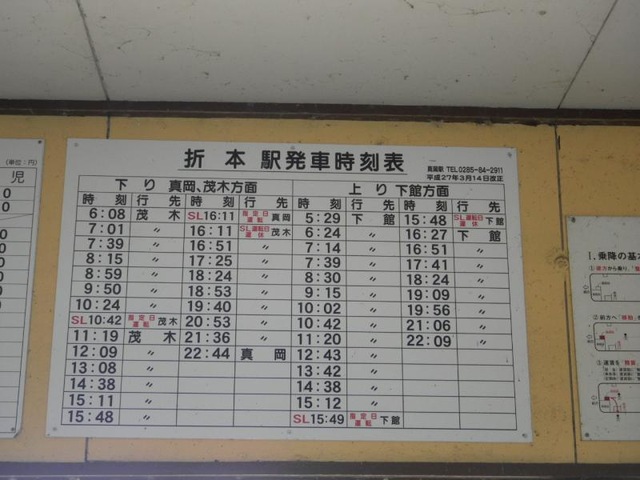 折本駅発車時刻表
真岡駅 TEL.0285-84-2911
平成27年3月14日改正
下り 真岡、茂木方面 上り 下館方面
時刻 行先 時刻 行先 時刻 行先 時刻 行先
6:08 茂木 SL16:11 指定日運転 真岡 5:29 下館 15:48 SL運転日運休 下館
7:01 〃 16:11 SL運転日運休 茂木 6:24 〃 16:27 下館
7:39 〃 16:51 〃 7:14 〃 16:51 〃
8:15 〃 17:25 〃 7:39 〃 17:41 〃
8:59 〃 18:24 〃 8:30 〃 18:24 〃
9:50 〃 18:53 〃 9:15 〃 19:09 〃
10:24 〃 19:40 〃 10:02 〃 19:56 〃
SL10:42 指定日運転 茂木 20:53 〃 10:42 〃 21:06 〃
11:19 茂木 21:36 〃 11:20 〃 22:09 〃
12:09 〃 22:44 真岡 12:43 〃
13:08 〃 13:42 〃
14:38 〃 14:38 〃
15:11 〃 15:12 〃
15:48 〃 SL15:49 指定日運転 下館
(単位:円)
児
0
0
0
0
0
0
0
0
1.乗降の基本